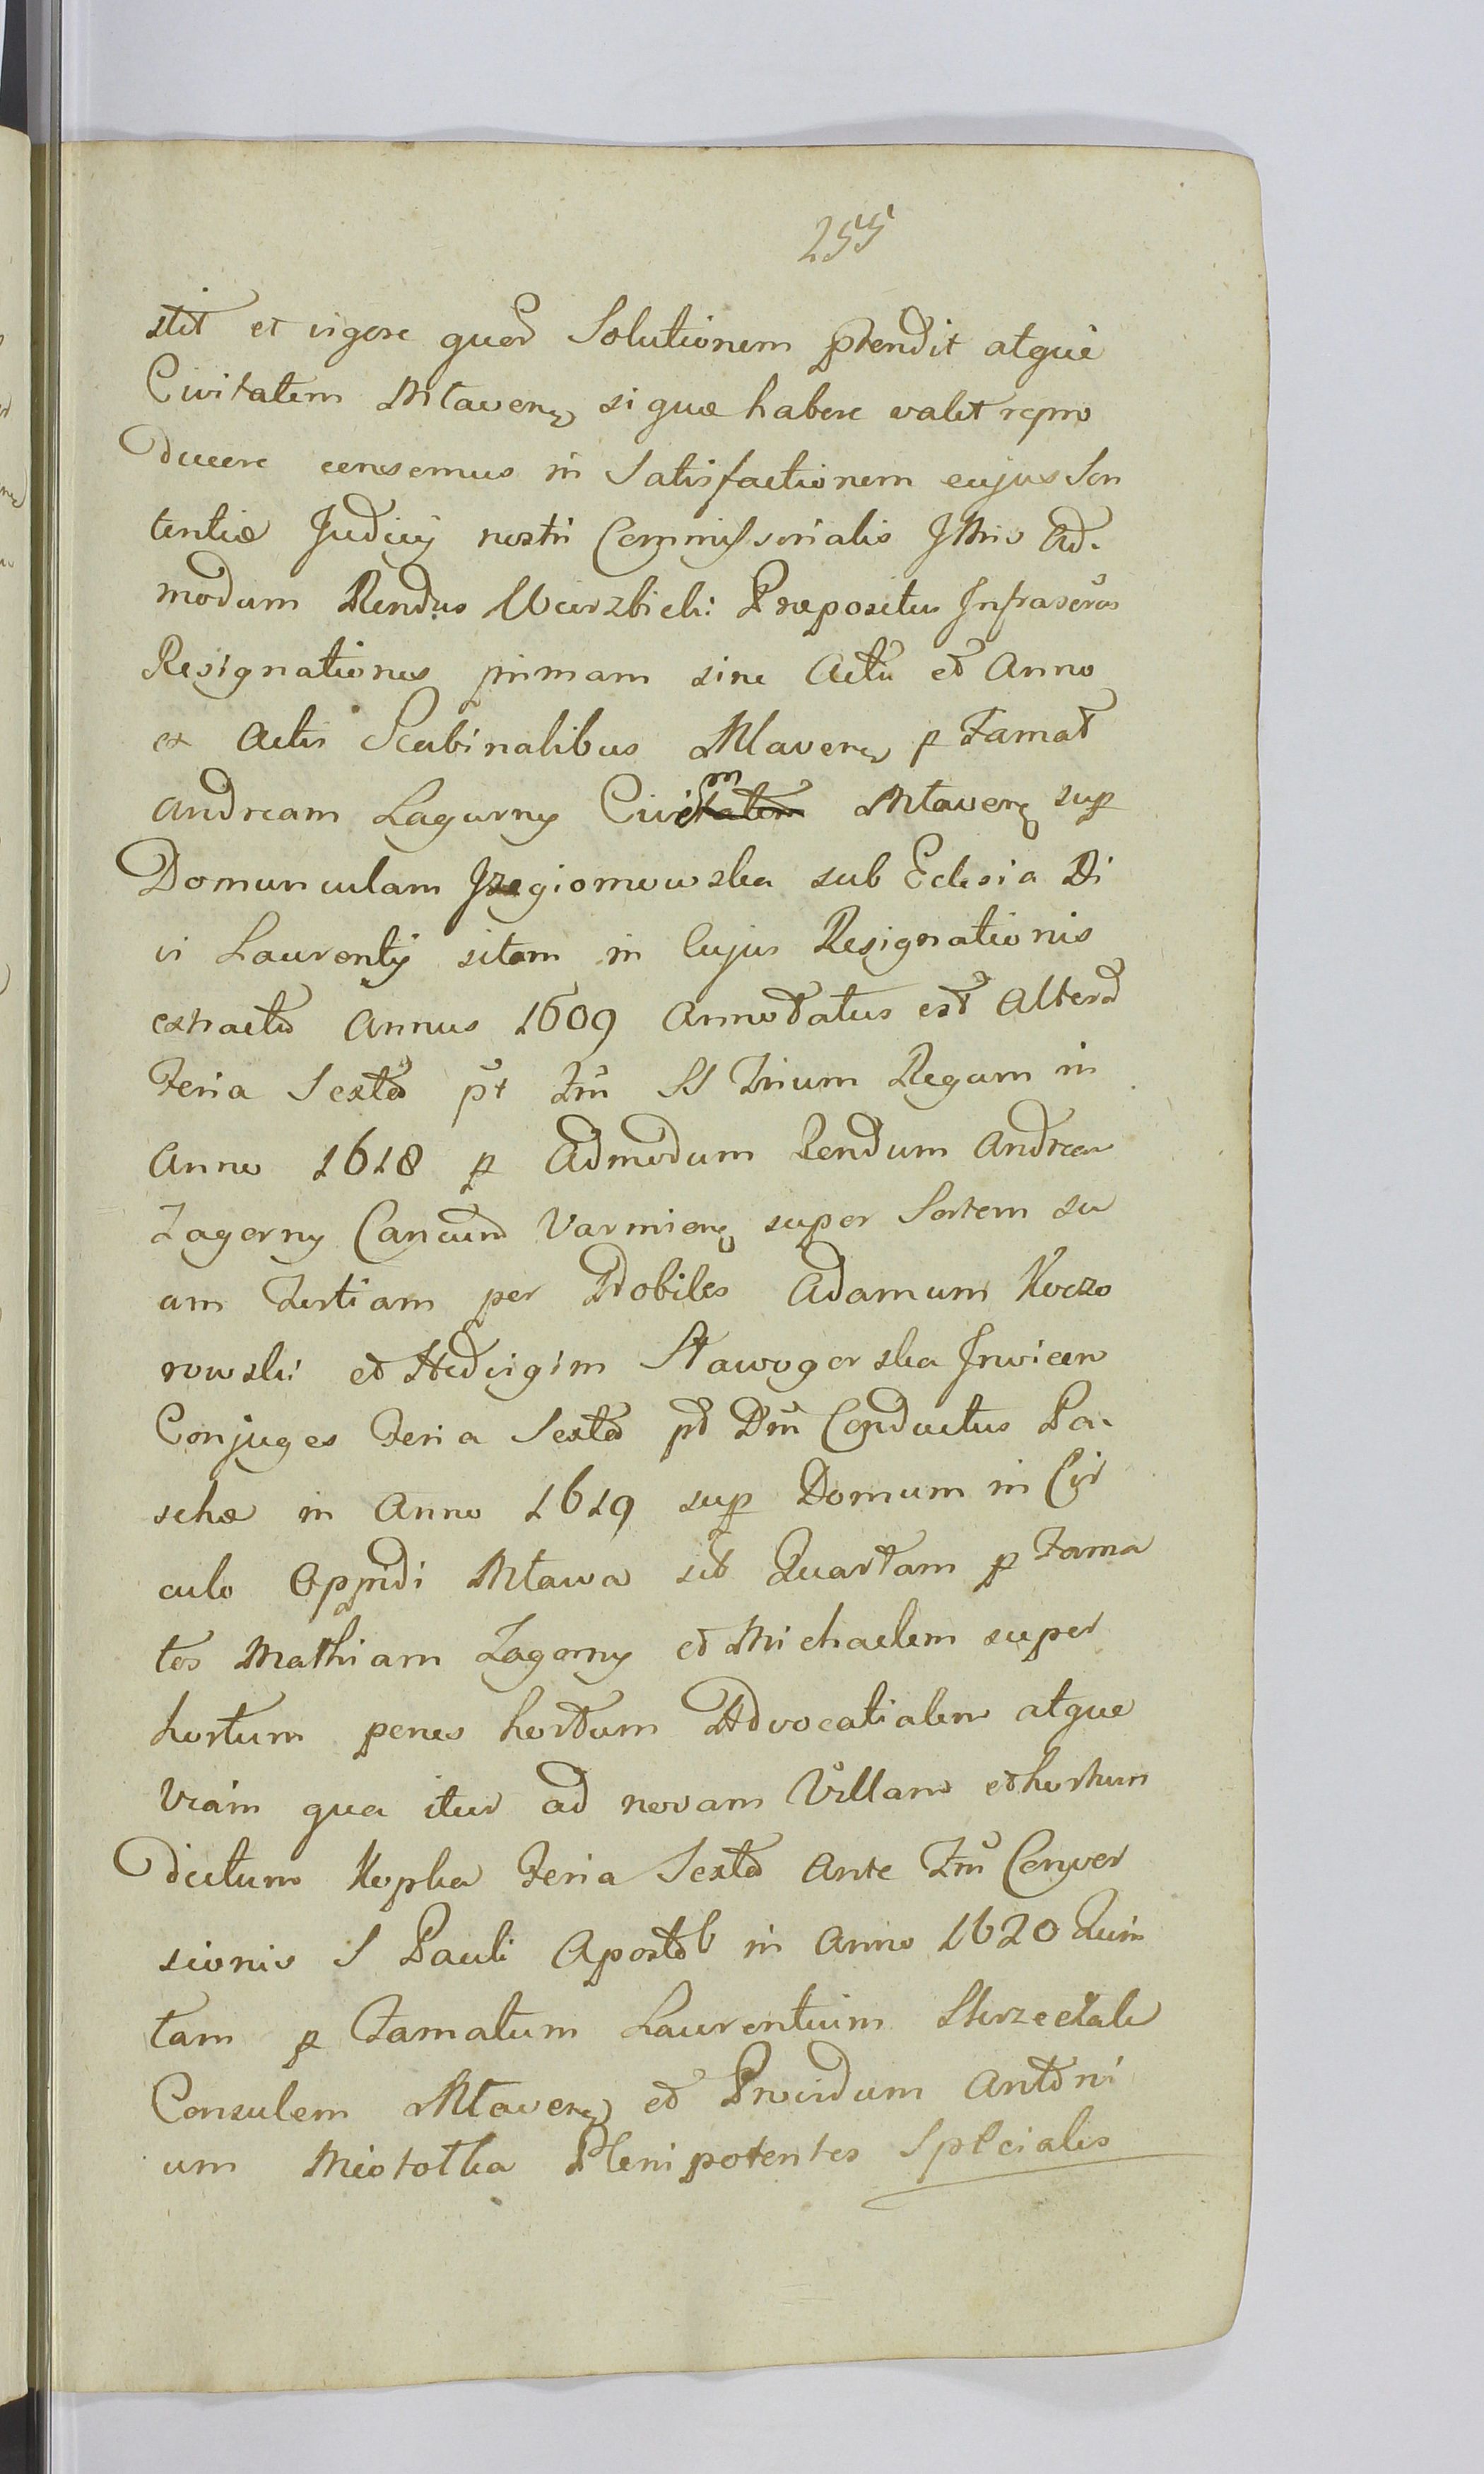 255
stit et vigore quod Solutionem ptendit atque
Civitatem Mlavens si quæ habere valet repro
ducere censemus in Satisfactionem cujus Sen
tentiæ Judicij nostri Commissorialis Illris Ad-
modum Rendus Wierzbicki Præpositus Infrascrtas
Resignationes primam sine Actu et Anno
ex Actis Scabinalibus Mlavens p Famat
Andream Zagurny Civem Mlavens sup
Domunculam sub Eclesia Di
vi Laurentij sitam in Cujus Resignationis
extractu Annus 1609 Annotatus est Altera
Feria Sexta pt Fm SS Trium Regum in
Anno 1618 p Admodum Rendum Andream
Zagorny Cancum Varmiens super Sortem su
am Tertiam per Nobiles Adamum Koczo
rowski et Hedvigim Stawogorska Invicem
Conjuges Feria Sexta pt Dm Conductus Pa-
schæ in Anno 1619 sup Domum in Cir
culo Oppidi Mlawa sit Quartam p Fama
tos Mathiam Zagorny et Michaelem super
hortum penes hortum Advocatialem atque
viam qua itur ad novam Villam et hortum
dictum Kopka Feria Sexta Ante Fm Conver
sionis S Pauli Apostol in Anno 1620 Quin
tam p Famatum Laurentium
Consulem Mlavens et Providum Antoni
um Miototka Plenipotentes Splcialis